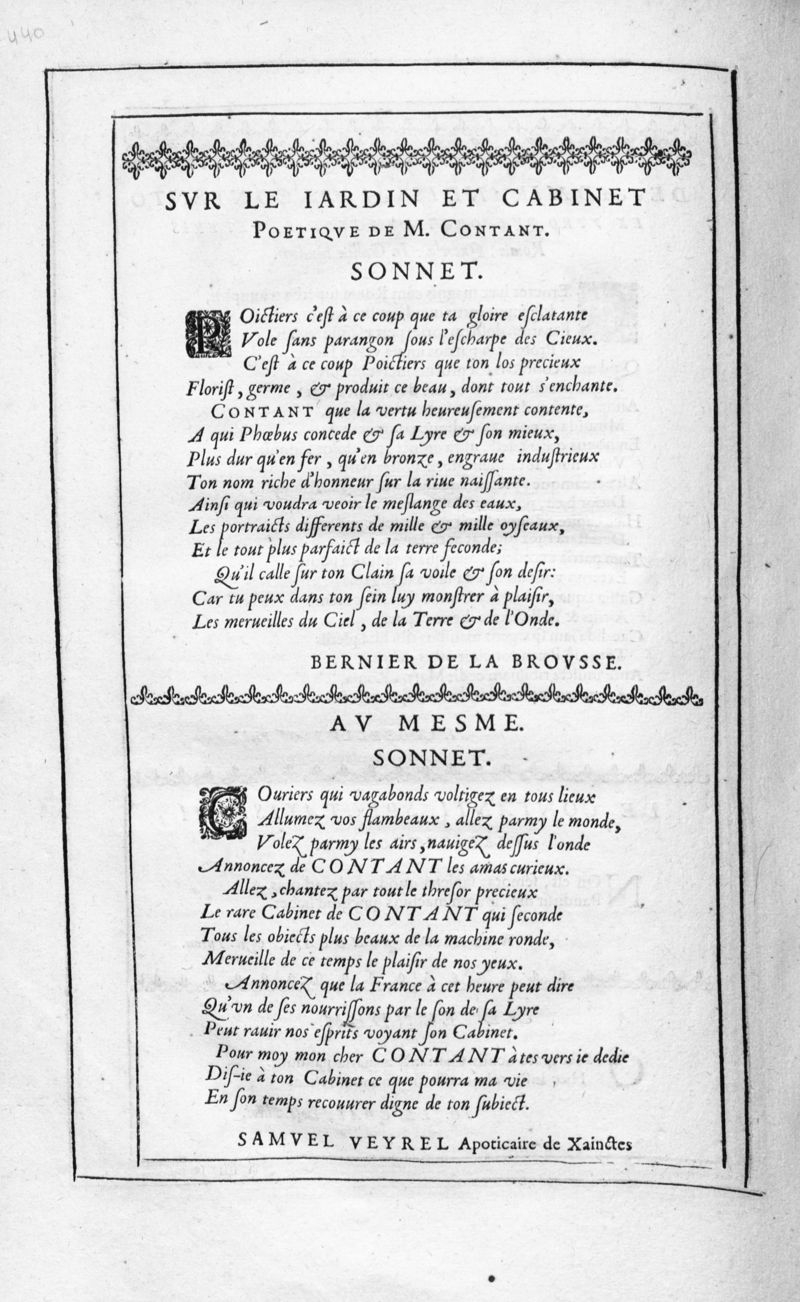 440
SVR LE IARDIN ET CABINET
POETIQVE DE M. CONTANT.
SONNET.
POictiers c'eſt à ce coup que ta gloire eſclatante
Vole ſans parangon ſous l'eſcharpe des Cieux.
C'eſt à ce coup Poictiers que ton los precieux
Floriſt, germe, & produit ce beau, dont tout s'enchante.
CONTANT que la vertu heureuſement contente,
A qui Phœbus concede & ſa Lyre & ſon mieux,
Plus dur qu'en fer, qu'en bronze, engraue induſtrieux
Ton nom riche d'honneur ſur la riue naiſſante.
Ainſi qui voudra veoir le meſlange des eaux,
Les portraicts differents de mille & mille oyſeaux,
Et le tout plus parfaict de la terre feconde;
Qu'il calle ſur ton Clain ſa voile & ſon deſir:
Car tu peux dans ton ſein luy monſtrer à plaiſir,
Les merueilles du Ciel, de la Terre & de l'Onde.
BERNIER DE LA BROVSSE.
AV MESME.
SONNET.
COuriers qui vagabonds voltigez en tous lieux
Allumez vos flambeaux, allez parmy le monde,
Volez parmy les airs, nauigez deſſus l'onde
Annoncez de CONTANT les amas curieux.
Allez, chantez par tout le threſor precieux
Le rare Cabinet de CONTANT qui ſeconde
Tous les obiects plus beaux de la machine ronde,
Merueille de ce temps le plaiſir de nos yeux.
Annoncez que la France à cet heure peut dire
Qu'vn de ſes nourriſſons par le ſon de ſa Lyre
Peut rauir nos eſprits voyant ſon Cabinet.
Pour moy mon cher CONTANT à tes vers ie dedie
Diſ-ie à ton Cabinet ce que pourra ma vie
En ſon temps recouurer digne de ton ſubiect.
SAMVEL VEYREL Apoticaire de Xainctes